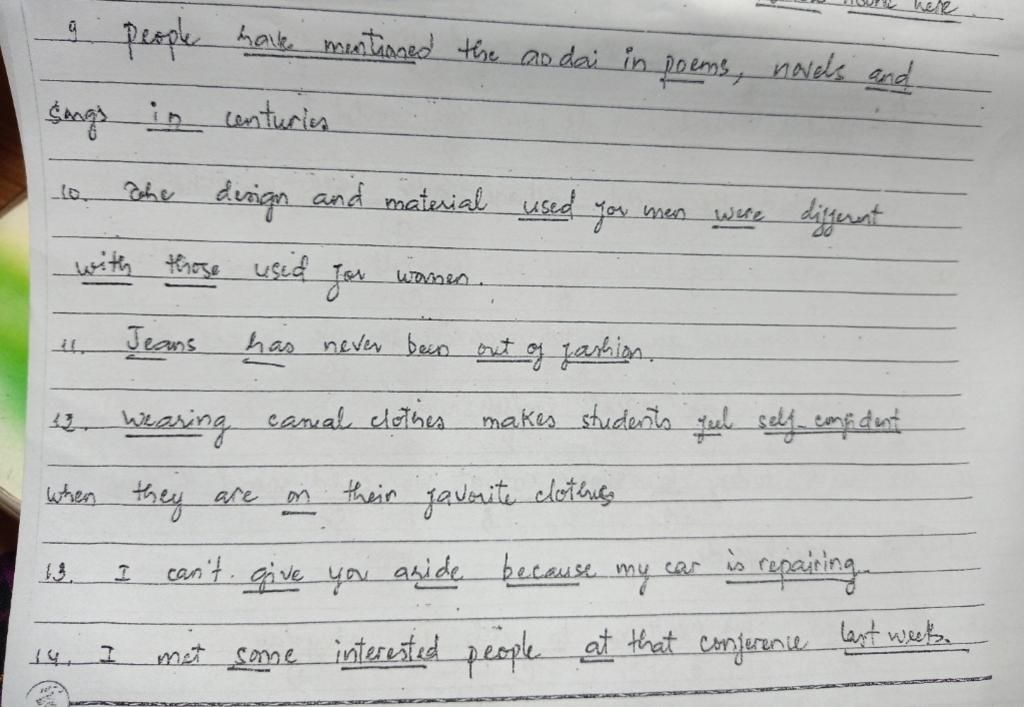 here
9 people have mentioned the ao dai in poems, novels and
songs in centuries
10. The design and material used for men were different
with those used for women.
11. Jeans has never been out of fashion.
12. Wearing casual clothes makes students feel self-confident
when they are on their favorite clothes
13. I can't give you a ride because my car is repairing
14. I met some interested people at that conference last week.